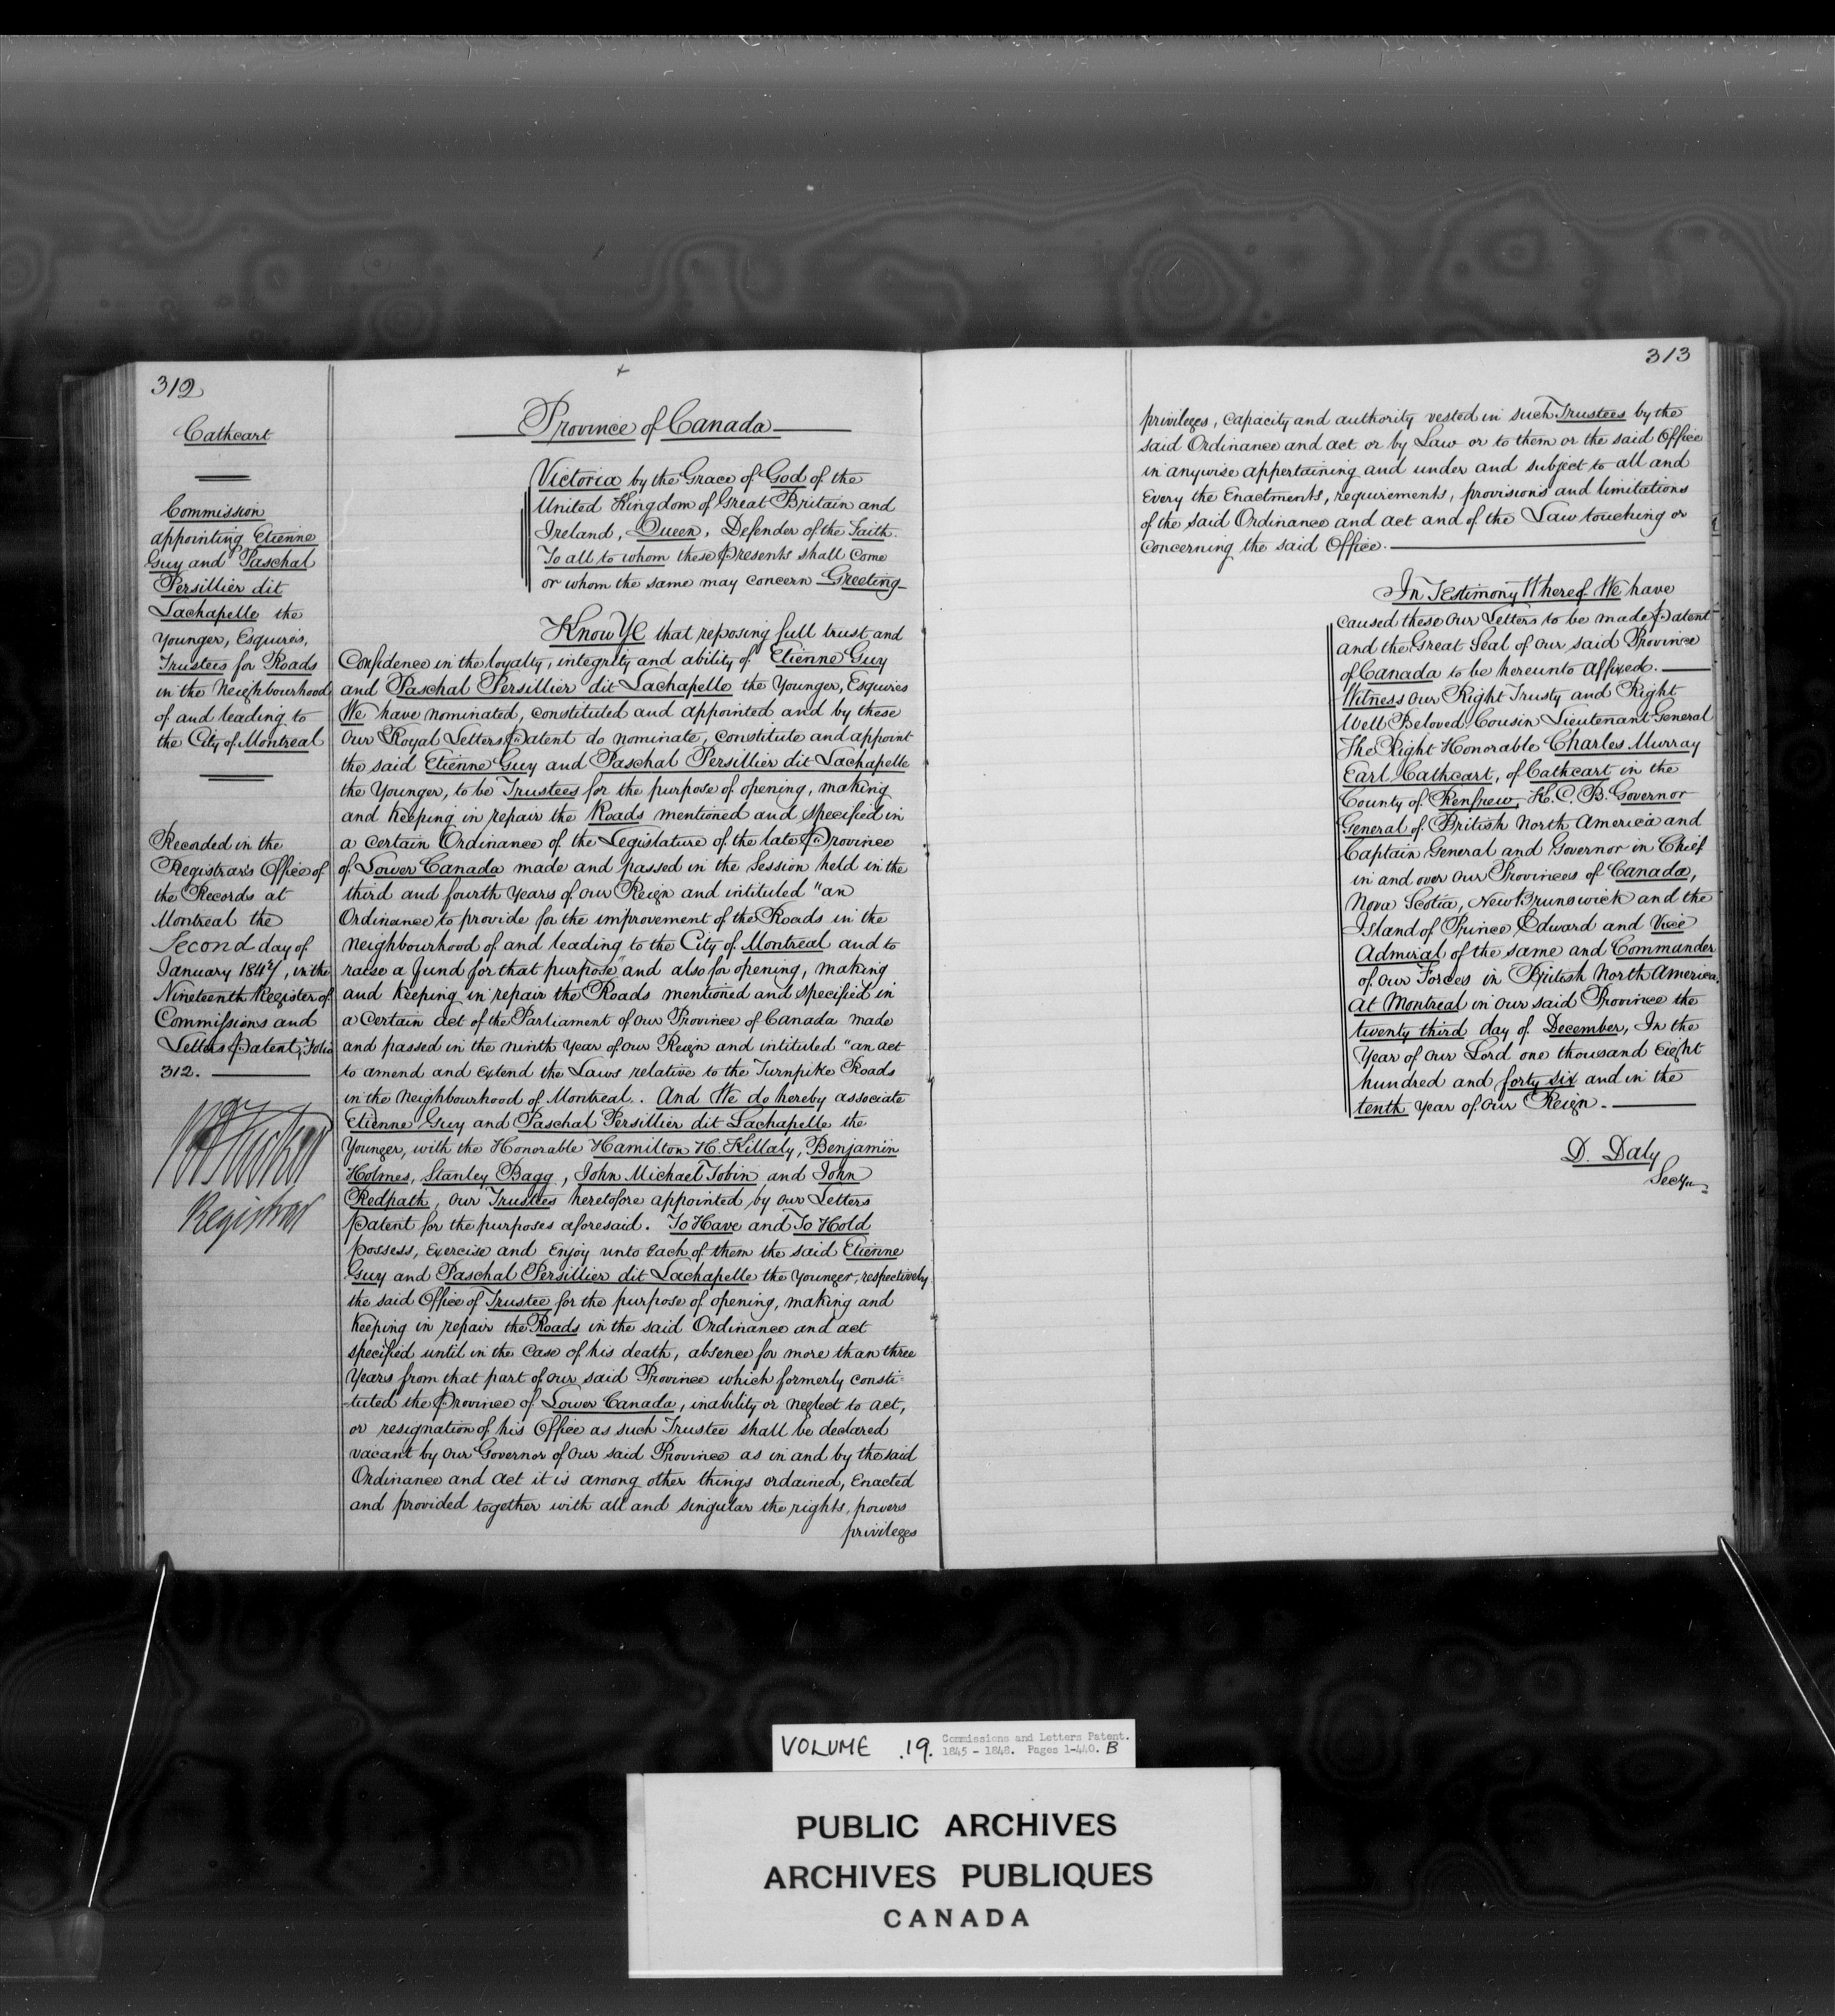 312
Cathcart
Commission
appointing Etienne
Guy and Paschal
Persillier dit
Lachapelle the
Younger, Esquires,
Trustees for Roads
in the Neighbourhood
of and leading to
the City of Montreal
Recorded in the
Registrar's Office of
the Records at
Montreal the
Second day of
January 1847, in the
Nineteenth Register of
Commissions and
Letters Patent, Folio
312.
Registrar
Province of Canada
Victoria by the Grace of God of the
United Kingdom of Great Britain and
Ireland, Queen, Defender of the Faith.
To all to whom these Presents shall come
or whom the same may concern Greeting
Know Ye that reposing full trust and
Confidence in the loyalty, integrity and ability of Etienne Guy
and Paschal Persillier dit Lachapelle the Younger, Esquires
We have nominated, constituted and appointed and by these
Our Royal Letters Patent do nominate, constitute and appoint
the said Etienne Guy and Paschal Persillier dit Lachapelle
the Younger, to be Trustees for the purpose of opening, making
and keeping in repair the Roads mentioned and specified in
a certain Ordinance of the Legislature of the late Province
of Lower Canada made and passed in the Session held in the
third and fourth Years of our Reign and intituled "an
Ordinance to provide for the improvement of the Roads in the
neighbourhood of and leading to the City of Montreal and to
raise a fund for that purpose" and also for opening, making
and keeping in repair the Roads mentioned and specified in
a Certain act of the Parliament of our Province of Canada made
and passed in the ninth Year of our Reign and intituled "an act
to amend and extend the Laws relative to the Turnpike Roads
in the Neighbourhood of Montreal. And We do hereby associate
Etienne Guy and Paschal Persillier dit Lachapelle the
Younger, with the Honorable Hamilton H. Killaly, Benjamin
Holmes, Stanley Bagg, John Michael Tobin and John
Redpath, our Trustees heretofore appointed by our Letters
Patent for the purposes aforesaid. To Have and To Hold
possess, exercise and enjoy unto each of them the said Etienne
Guy and Paschal Persillier dit Lachapelle the Younger, respectively
the said Office of Trustee for the purpose of opening, making and
keeping in repair the Roads in the said Ordinance and act
specified until in the Case of his death, absence for more than three
Years from that part of our said Province which formerly consti-
-tuted the Province of Lower Canada, inability or neglect to act,
or resignation of his Office as such Trustee shall be declared
vacant by our Governor of our said Province as in and by the said
Ordinance and act it is among other things ordained, Enacted
and provided together with all and singular the rights, powers
privileges
313
privileges, capacity and authority vested in such Trustees by the
said Ordinance and act or by Law or to them or the said Office
in anywise appertaining and under and subject to all and
Every the Enactments, requirements, provisions and limitations
of the said Ordinance and act and of the Law touching or
concerning the said Office.
In Testimony Whereof We have
caused these our Letters to be made Patent
and the Great Seal of our said Province
of Canada to be hereunto affixed.
Witness our Right Trusty and Right
Well Beloved Cousin Lieutenant General
The Right Honorable Charles Murray
Earl Cathcart, of Cathcart in the
County of Renfrew, K.C.B. Governor
General of British North America and
Captain General and Governor in Chief
in and over our Provinces of Canada,
Nova Scotia, New Brunswick and the
Island of Prince Edward and Vice
Admiral of the same and Commander
of our Forces in British North America.
At Montreal in our said Province the
twenty third day of December, In the
Year of our Lord one thousand Eight
hundred and forty six and in the
tenth Year of our Reign.
D. Daly
Secy
VOLUME .19. Commissions and Letters Patent.
1845 - 1848. Pages 1-440. B
PUBLIC ARCHIVES
ARCHIVES PUBLIQUES
CANADA